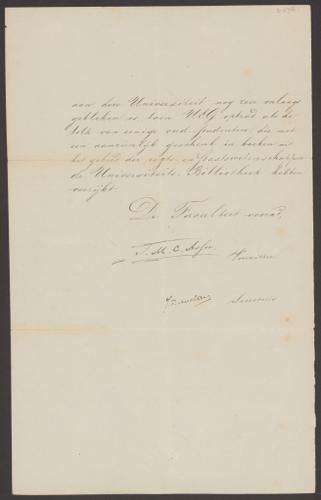 aan deze Universiteit nog zeer onlangs
gebleken is, toen UEG optrad als de
tolk van eenige oud-studenten, die met
een aanzienlijk geschenk in boeken uit
het gebied der regts- en Staatswetenschappen
de Universiteits-Bibliotheek hebben
verrijkt.
De Faculteit voorn.d
T. M. C. Asser
Voorzitter
Secretaris